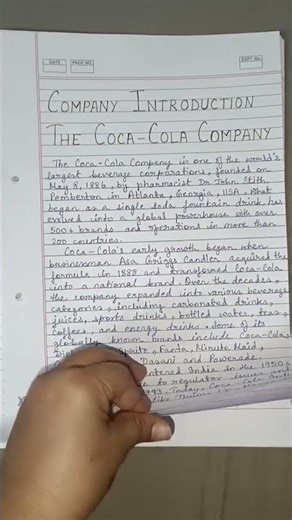 DATE
PAGE NO.
EXPT. No.
COMPANY INTRODUCTION
THE COCA-COLA COMPANY
The Coca-Cola Company is one of the world's
largest beverage corporations, founded on
May 8, 1886, by pharmacist Dr. John Stith
Pemberton in Atlanta, Georgia, USA. What
began as a single soda fountain drink has
evolved into a global powerhouse with over
500+ brands and operations in more than
200 countries.
Coca-Cola's early growth began when
businessman Asa Griggs Candler acquired the
formula in 1888 and transformed Coca-Cola
into a national brand. Over the decades,
the company expanded into various beverage
categories, including carbonated drinks,
juices, sports drinks, bottled water, teas,
coffees, and energy drinks. Some of its
globally known brands include Coca-Cola,
Sprite, Fanta, Minute Maid,
Dasani and Powerade.
entered India in the 1950s
due to regulatory issues and
1993. Today, Coca-Cola
like Thums Up,